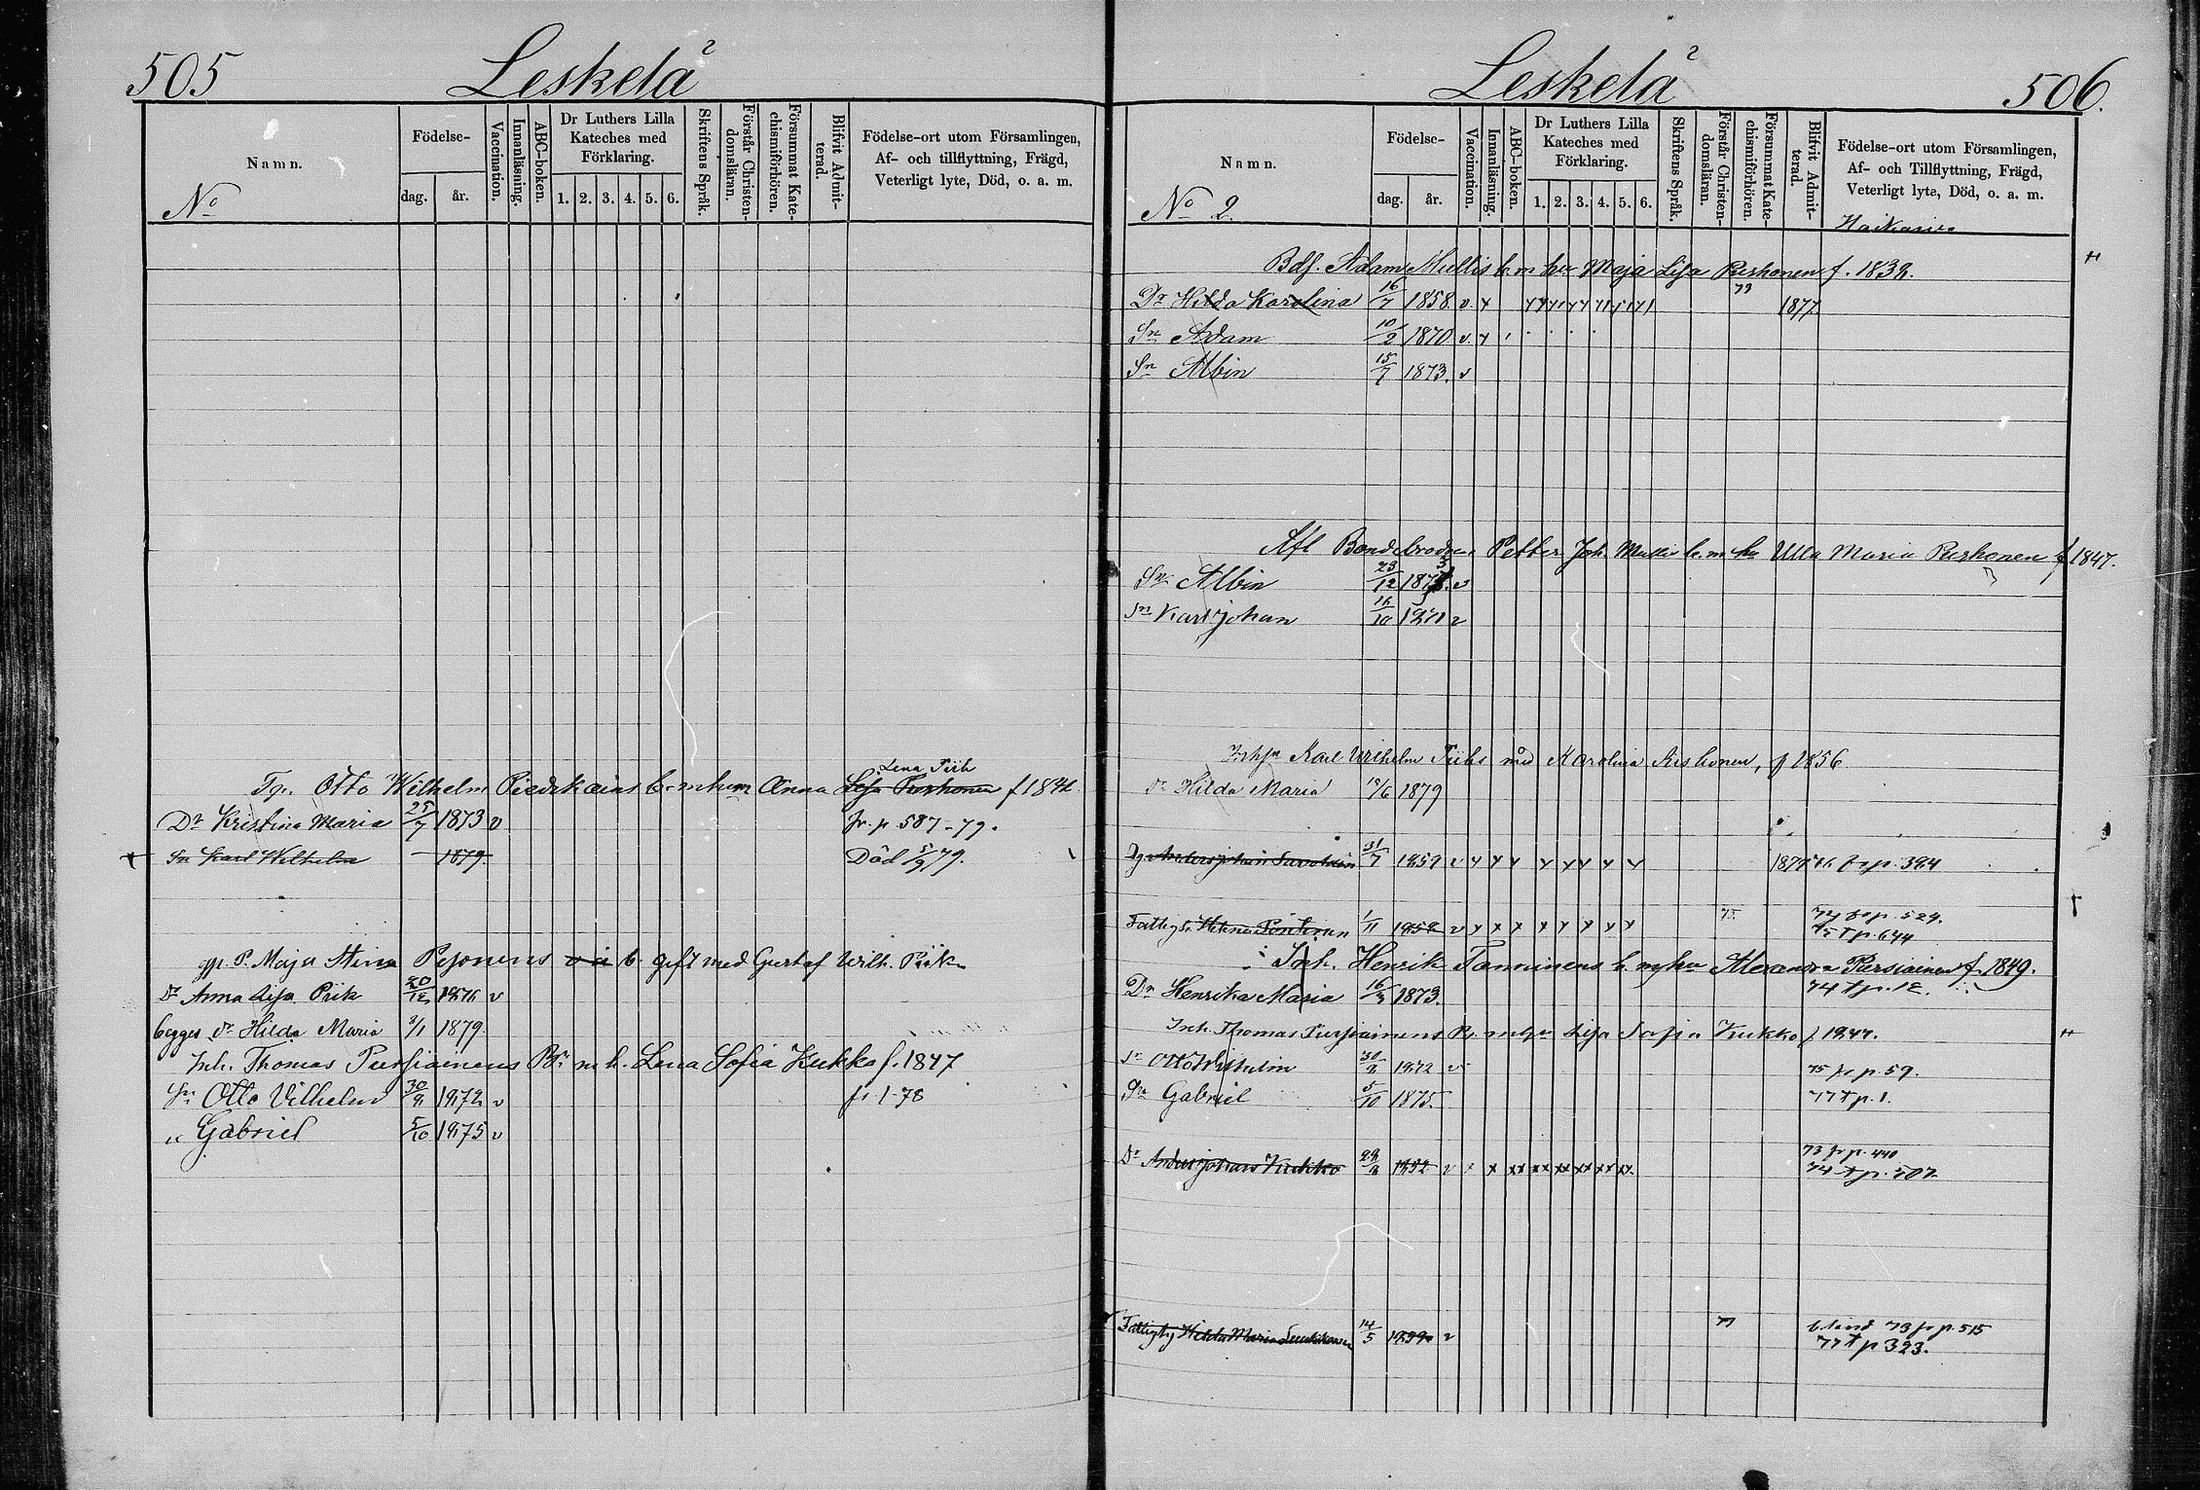 505
Leskelä 2
Namn.
No
Födelse-
dag.
år.
Vaccination.
Innanläsning.
ABC-boken.
Dr Luthers Lilla Kateches med Förklaring.
1. 2. 3. 4. 5. 6.
Skriftens Språk.
Förstår Christendomsläran.
Försummat Katechismiförhören.
Blifvit Admitterad.
Födelse-ort utom Församlingen,
Af- och tillflyttning, Frägd,
Veterligt lyte, Död, o. a. m.
Lena Piik
Otto Wilhelm b. m hem Anna Lisa Purhonen f 1842
Dr Kristina Maria 25/7 1873 v fr. p 587-79.
Sn Karl Wilhelm 1879 Död 5/9 79.
P. Maja Stina Pejonens b. gift med Gustaf Wilh. Piik
Dr Anna Lisa Piik 20/12 1876 v
begges dr Hilda Maria 3/1 1879
Inh. Thomas Pursiainens Br m h. Lena Sofia Kukko f. 1847
Sn Otto Vilhelm 30/9 1872 v fr 1-78
" Gabriel 5/10 1875 v
506.
Leskelä 2
Namn.
No 2.
Födelse-
dag.
år.
Vaccination.
Innanläsning.
ABC-boken.
Dr Luthers Lilla Kateches med Förklaring.
1. 2. 3. 4. 5. 6.
Skriftens Språk.
Förstår Christendomsläran.
Försummat Katechismiförhören.
Blifvit Admitterad.
Födelse-ort utom Församlingen,
Af- och Tillflyttning, Frägd,
Veterligt lyte, Död, o. a. m.
Bdf. Adam Mullis b. m hu Maja Lisa Purhonen f. 1832.
Dr Hilda Karolina 16/7 1858 v. 79 1877
Sn Adam 10/2 1870 v.
Sn Albin 15/7 1873. v
Afl Bondebrodren Petter Joh. Mullis b. m hu Ulla Maria Purhonen f 1847.
Sn Albin 23/12 187 v
Sn Karl Johan 16/10 v
Karl Wilhelm med Karolina f 1856
dr Hilda Maria 1879
Anders Johan Savolain 31/7 1859 v fr p. 394
1/11 v 75 74 fr p. 529.
75 t p. 644
Inh. Henrik Tanninens b. m hu Alexandra Pursiainen f. 1849.
Dr Henrika Maria 16/3 1873. 74 t p. 12.
Inh. Thomas Pursiainens Br. m hu Lisa Sofia Kukko f 1847.
Sn Otto Wilhelm 30/9 1872 v 75 fr p. 59.
Sn Gabriel 5/10 1875. 77 t p. 1.
Dr Anders Johan Kukko 1852 v 73 fr p. 440
74 t p. 507
Hilda Maria 14/5 v 77 blind 73 fr p. 515
77 t p 323.